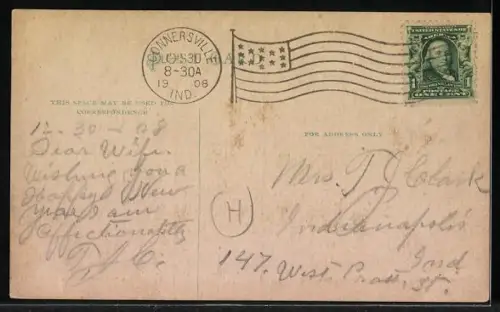 CONNERSVILLE
8-30A
1908
IND.
UNITED STATES OF AMERICA
POSTAGE
1 ONE CENT 1
THIS SPACE MAY BE USED FOR
CORRESPONDENCE
FOR ADDRESS ONLY
12-30-08
Dear Wife.
Wishing you a
Happy New
Year I am
Affectionately
T. J. C.
H
Mrs. T J Clark
Indianapolis
Ind.
147. West Pratt St.